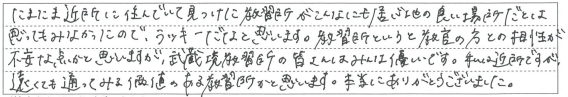 たまたま近所に住んでいて見つけた教習所がこんなにも居心地の良い場所だとは
思ってもみなかったので、ラッキーだなと思います。教習所というと教官の方との相性が
不安な点かと思いますが、武蔵境教習所の皆さんはみんな優いです。私は近所ですが、
遠くても通ってみる価値のある教習所かと思います。本当にありがとうございました。